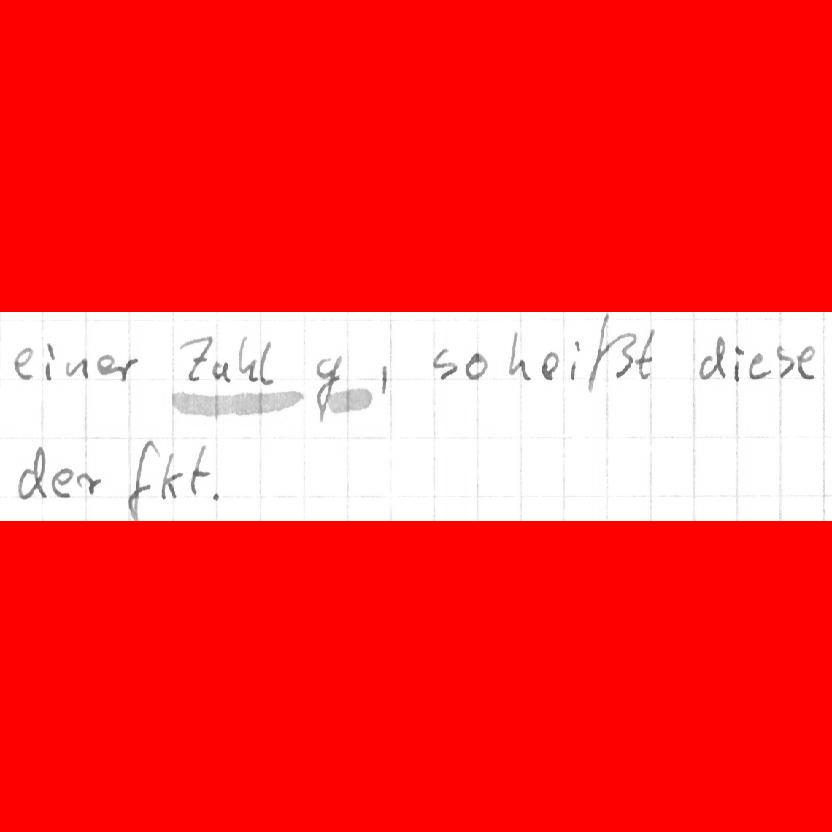 einer Zahl y, so heißt diese
der fkt.